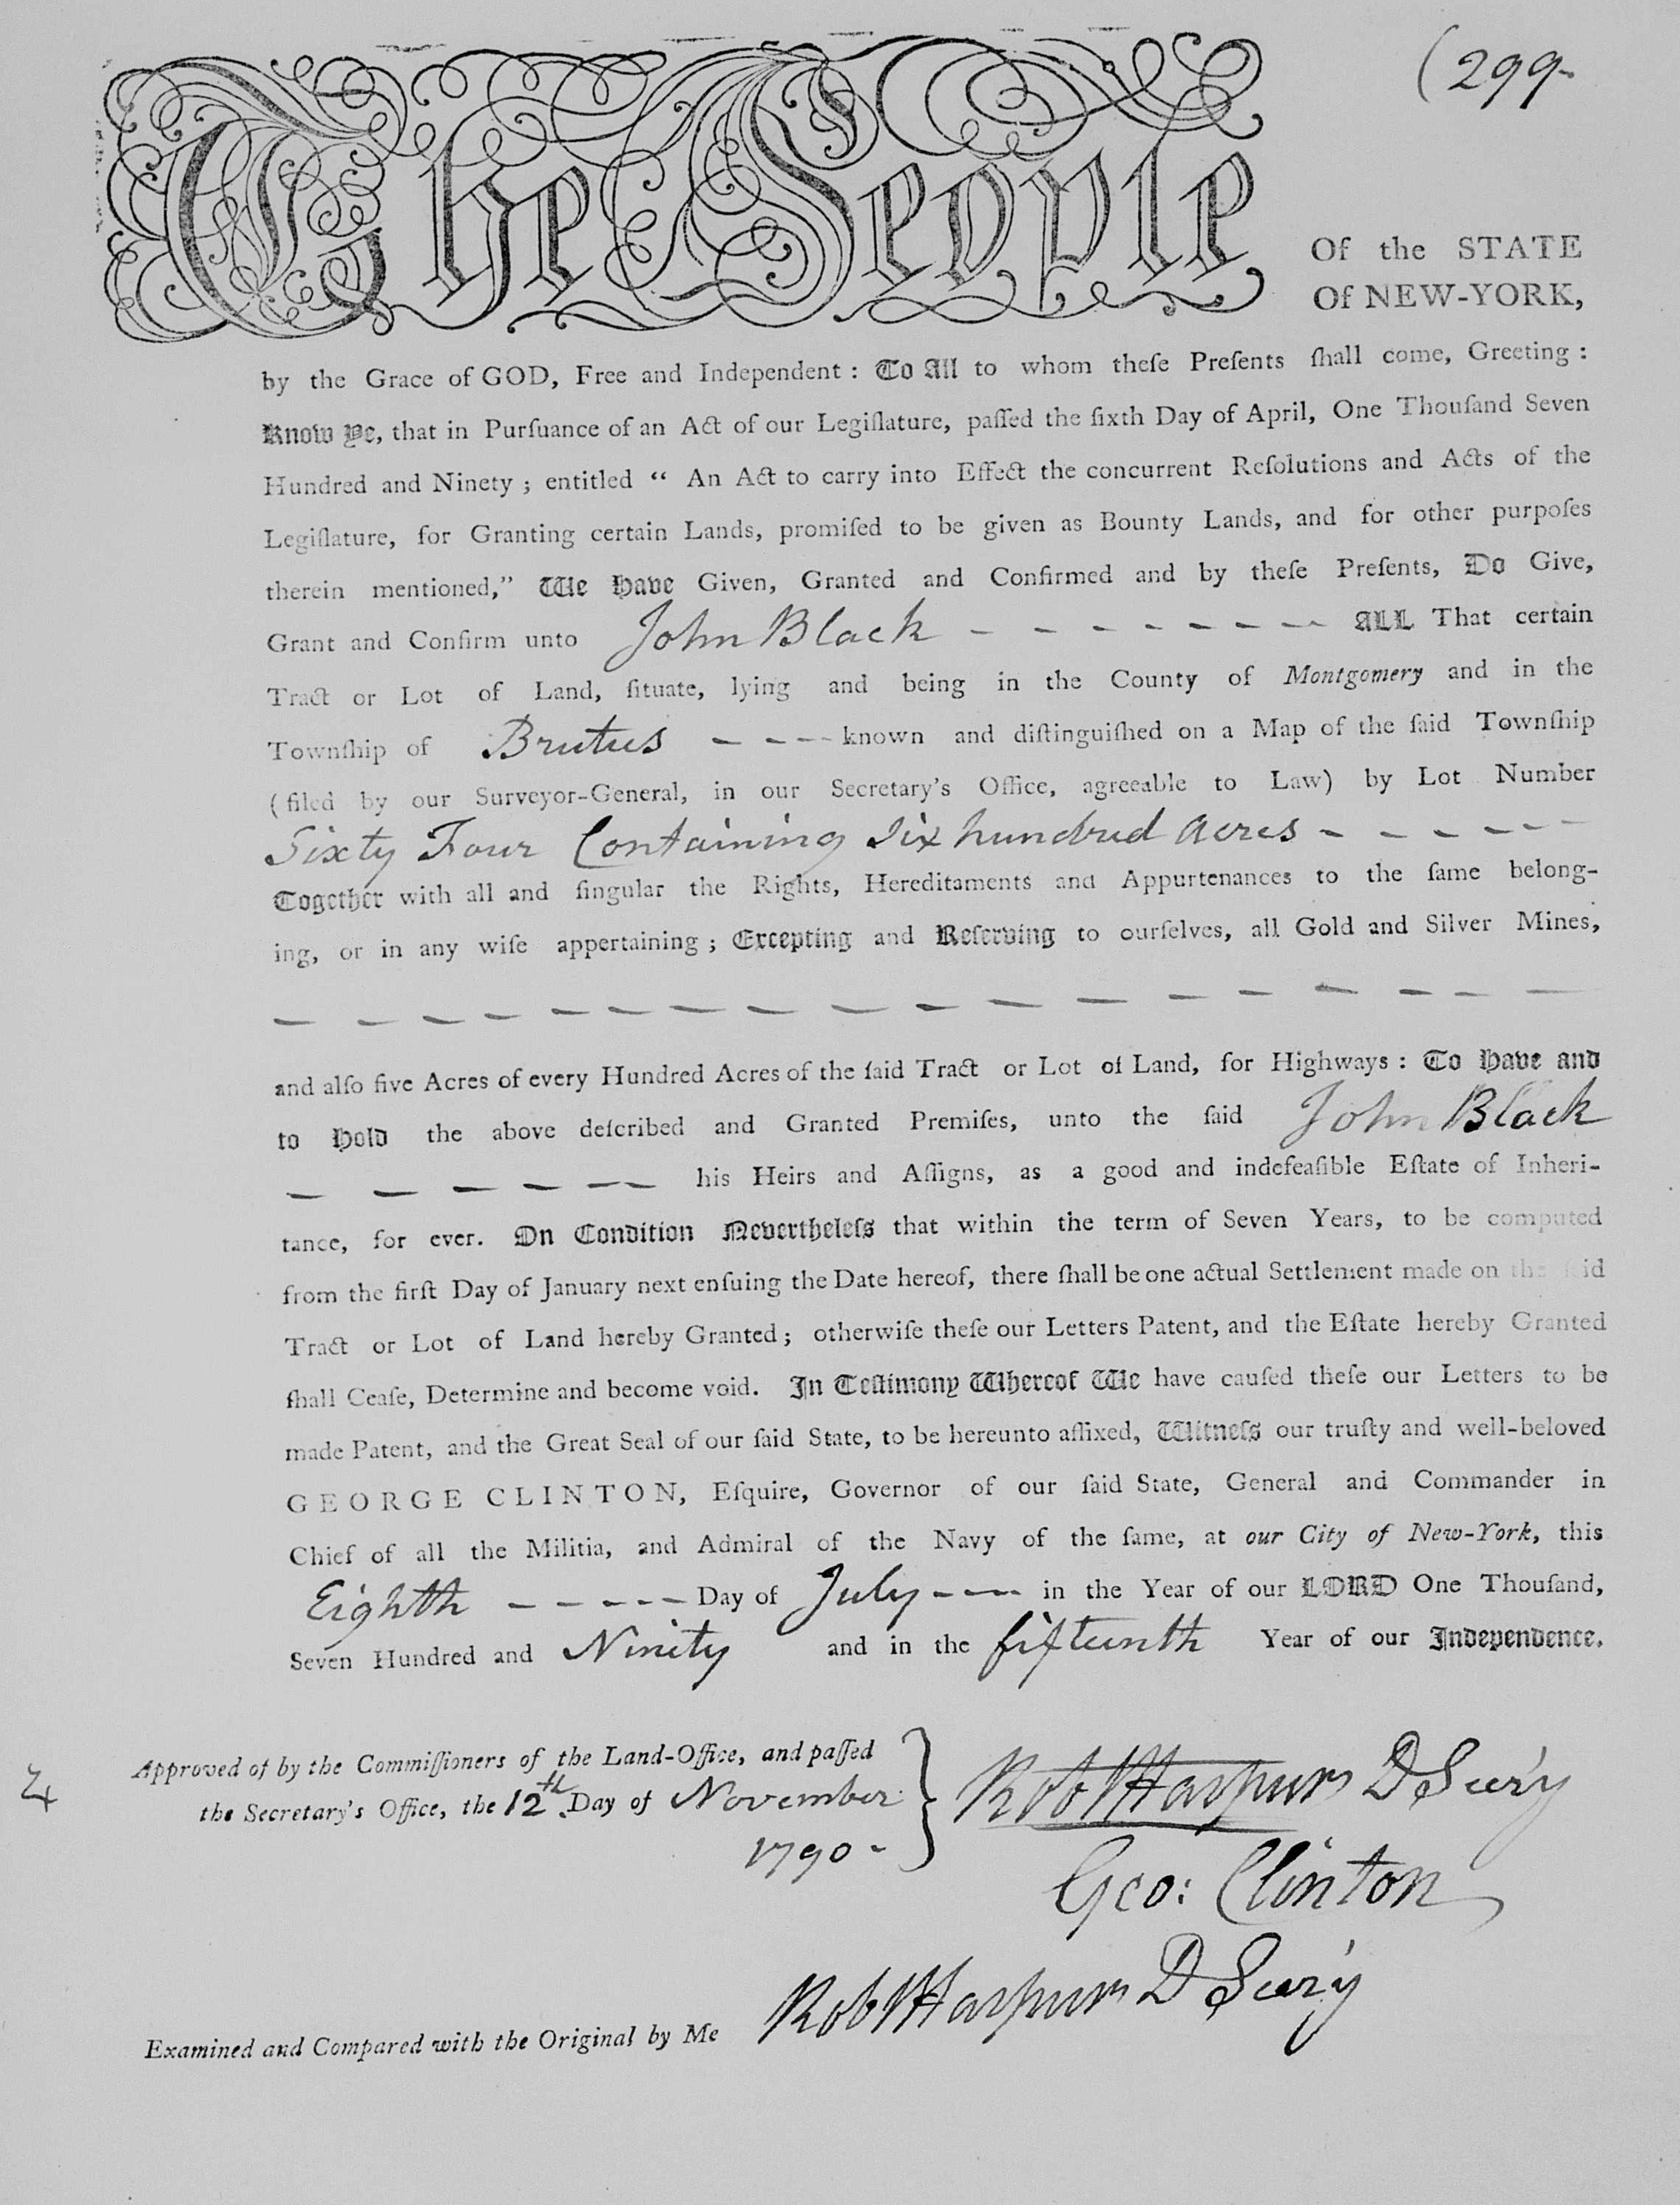 (299-
The People
Of the STATE
Of NEW-YORK,
by the Grace of GOD, Free and Independent : To All to whom theſe Preſents ſhall come, Greeting :
Know Ye, that in Purſuance of an Act of our Legiſlature, paſſed the ſixth Day of April, One Thouſand Seven
Hundred and Ninety ; entitled “ An Act to carry into Effect the concurrent Reſolutions and Acts of the
Legiſlature, for Granting certain Lands, promiſed to be given as Bounty Lands, and for other purpoſes
therein mentioned,” We Have Given, Granted and Confirmed and by theſe Preſents, Do Give,
Grant and Confirm unto John Black - - - - - - - - ALL That certain
Tract or Lot of Land, ſituate, lying and being in the County of Montgomery and in the
Townſhip of Brutus - - - known and diſtinguiſhed on a Map of the ſaid Townſhip
(filed by our Surveyor-General, in our Secretary’s Office, agreeable to Law) by Lot Number
Sixty Four Containing Six hundred Acres - - - - - -
Together with all and ſingular the Rights, Hereditaments and Appurtenances to the ſame belong-
ing, or in any wiſe appertaining ; Excepting and Reſerving to ourſelves, all Gold and Silver Mines,
and alſo five Acres of every Hundred Acres of the ſaid Tract or Lot of Land, for Highways : To Have and
to Hold the above deſcribed and Granted Premiſes, unto the ſaid John Black
- - - - - - his Heirs and Aſſigns, as a good and indefeaſible Eſtate of Inheri-
tance, for ever. On Condition Nevertheleſs that within the term of Seven Years, to be computed
from the firſt Day of January next enſuing the Date hereof, there ſhall be one actual Settlement made on the ſaid
Tract or Lot of Land hereby Granted ; otherwiſe theſe our Letters Patent, and the Eſtate hereby Granted
ſhall Ceaſe, Determine and become void. In Teſtimony Whereof We have cauſed theſe our Letters to be
made Patent, and the Great Seal of our ſaid State, to be hereunto affixed, Witneſs our truſty and well-beloved
GEORGE CLINTON, Eſquire, Governor of our ſaid State, General and Commander in
Chief of all the Militia, and Admiral of the Navy of the ſame, at our City of New-York, this
Eighth - - - - - Day of July - - - in the Year of our LORD One Thouſand,
Seven Hundred and Ninety and in the fifteenth Year of our Independence.
Approved of by the Commiſſioners of the Land-Office, and paſſed
the Secretary’s Office, the 12th Day of November
1790 -
Robt Harpur D Secry
Geo: Clinton
Examined and Compared with the Original by Me Robt Harpur D Secry